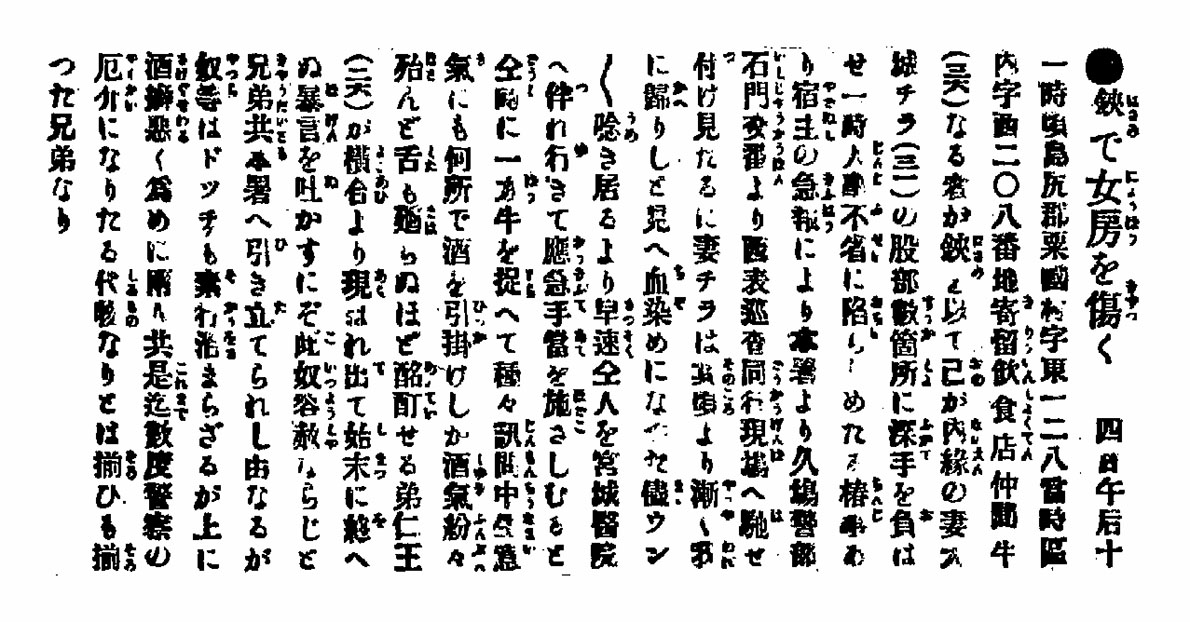 ●鋏で女房を傷く 四日午后十
一時頃島尻郡粟國村字東一二八當時區
内字西二〇八番地寄留飲食店仲間牛
(三六)なる者が鋏を以て己が内緣の妻大
城チラ(三一)の股部數箇所に深手を負は
せ一時人事不省に陷らしめたる椿事あ
り宿主の急報により本署より久塲警部
石門交番より西表巡査同行現塲へ馳せ
付け見たるに妻チラは其頃より漸く我
に歸りしと見へ血染めになつた儘ウン
〱唸き居るより早速仝人を宮城醫院
へ伴れ行きて應急手當を施さしむると
仝時に一方牛を捉へて種々訊問中生意
氣にも何所で酒を引掛けしか酒氣紛々
殆んど舌も廻らぬほど酩酊せる弟仁王
(二六)が橫合より現はれ出て始末に終へ
ぬ暴言を吐かすにぞ此奴容赦ならじと
兄弟共本署へ引き立てられし由なるが
奴等はドッチも素行治まらざるが上に
酒癖惡く爲めに兩人共是迄數度警察の
厄介になりたる代物なりとは揃ひも揃
つた兄弟なり